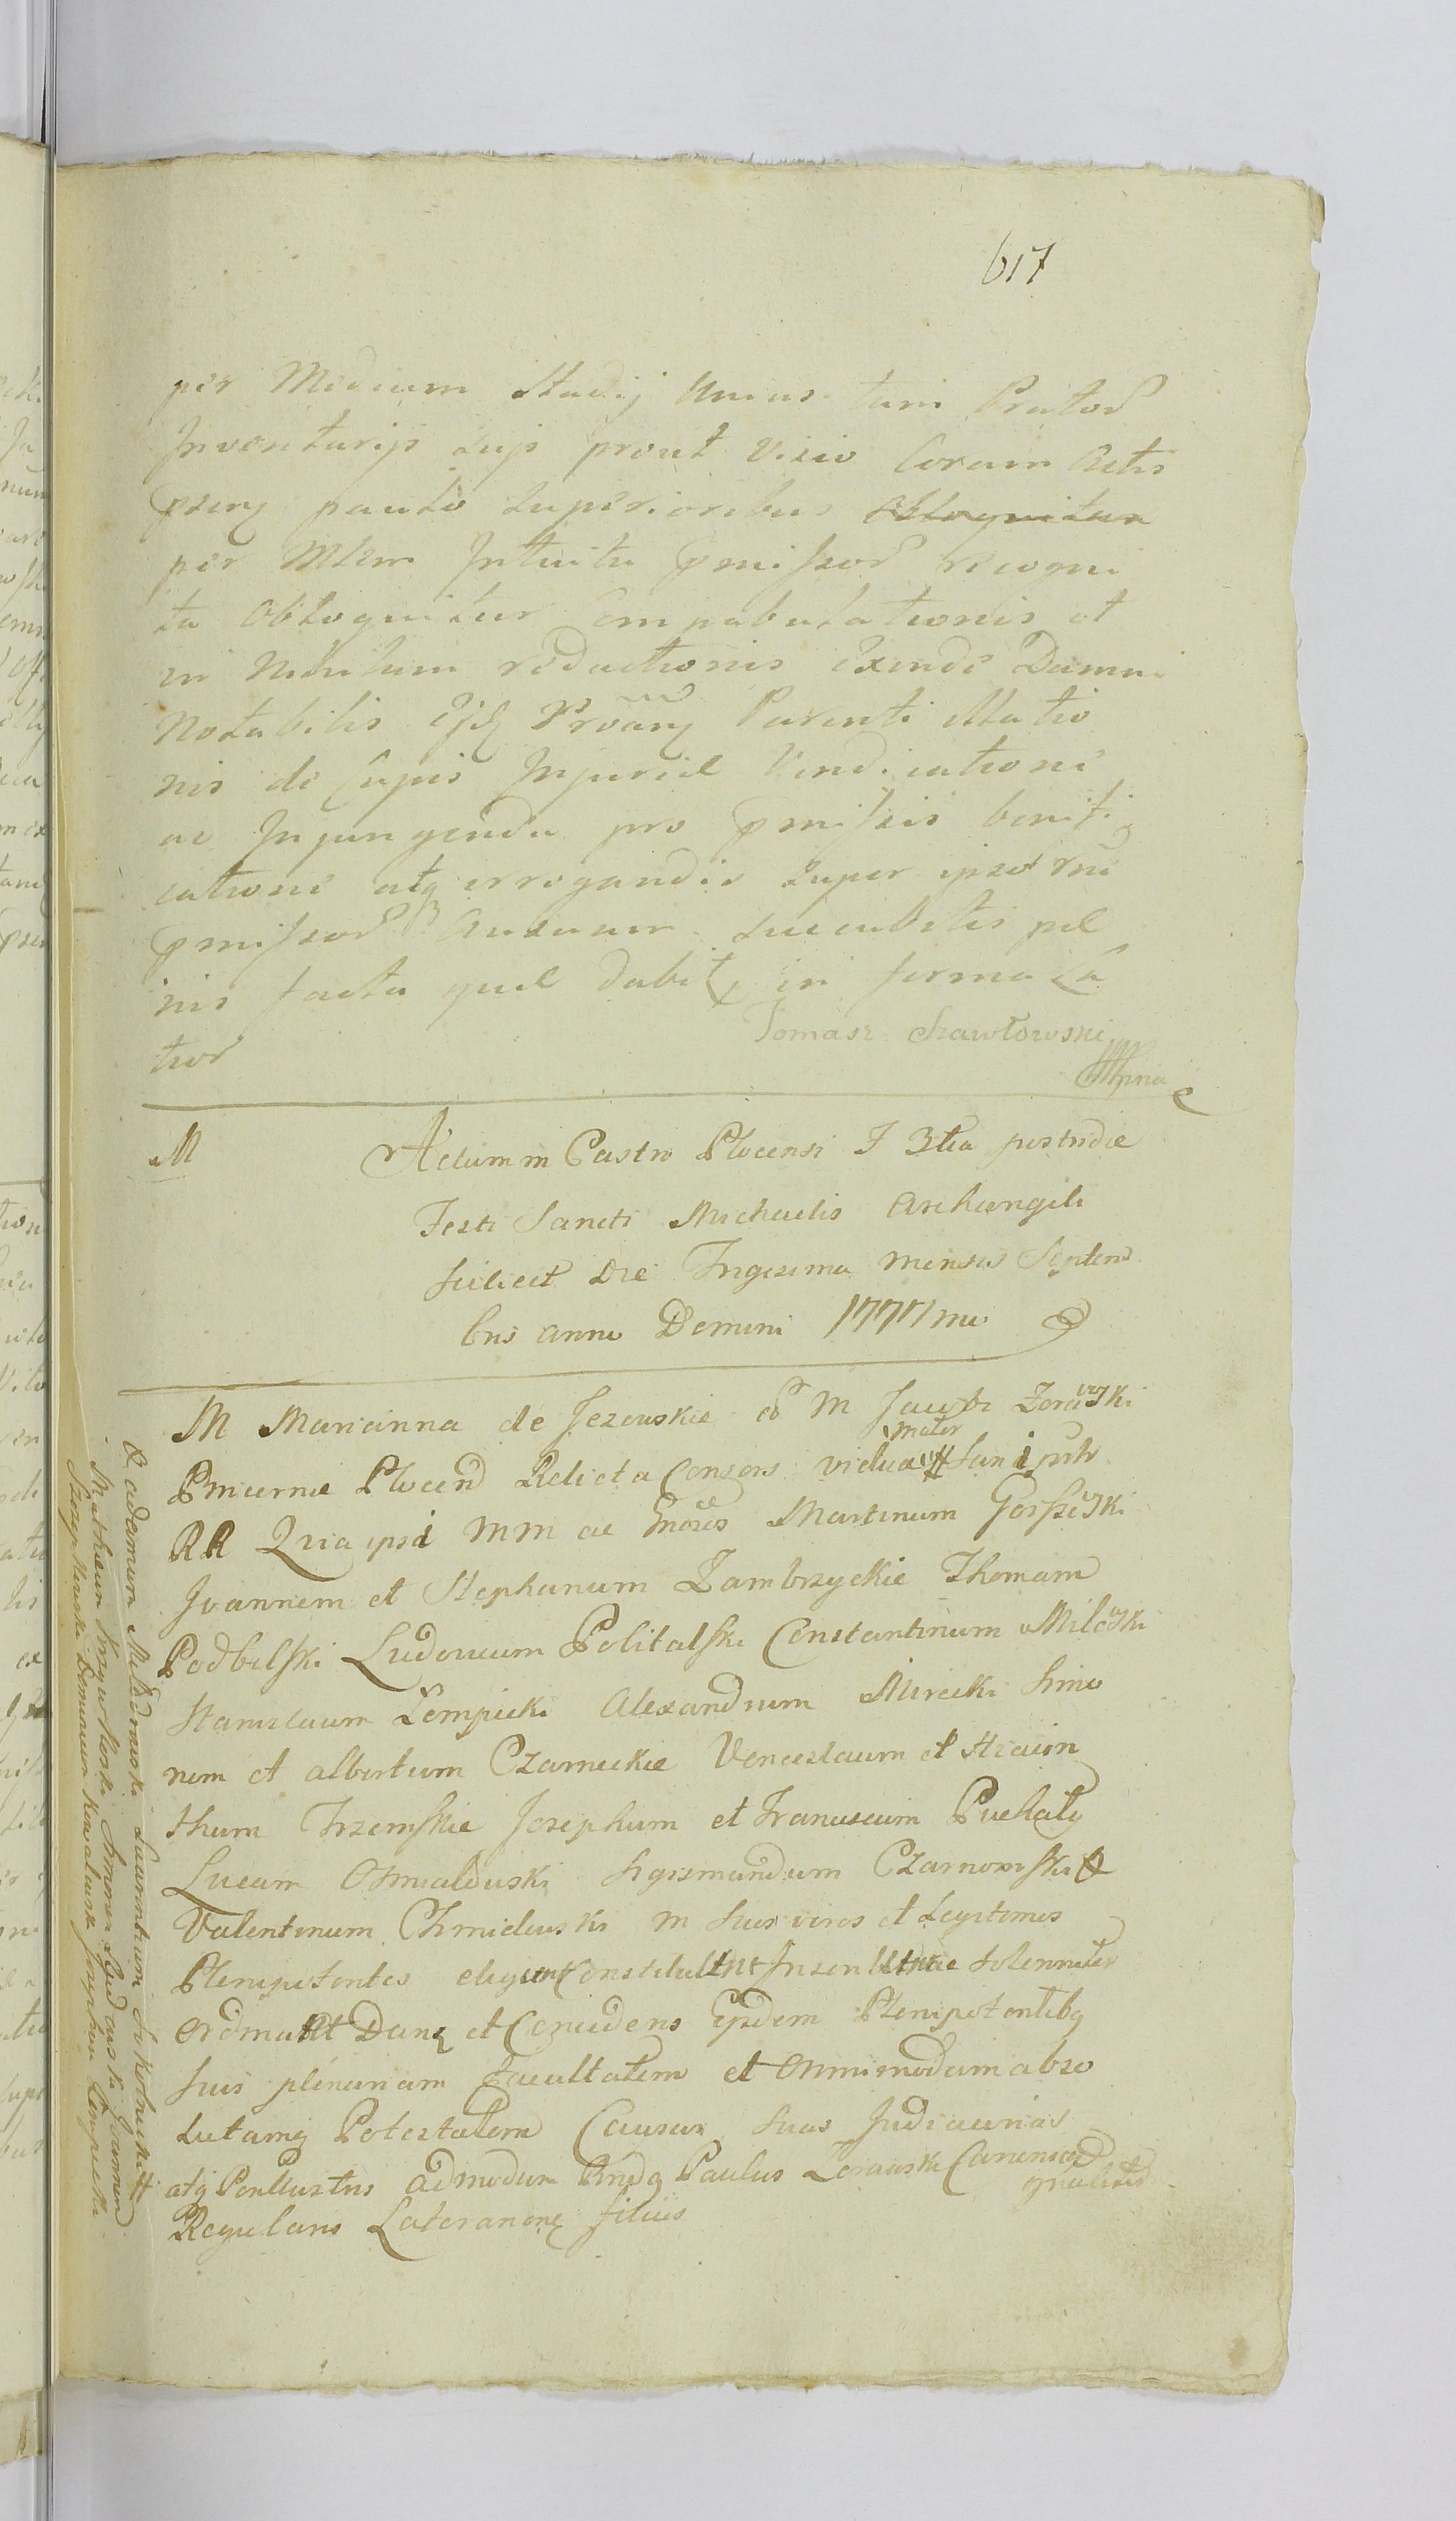 617
per Medium Stadij Unius tam Pratorˀ
Inventarijs suis prout Visio Coram Actis
pseng paulo superioribus obloquitur
per Mlem Intuitu pmissorˀ recogni
ta obloquitur Compabulationis et
in Nihilum reductionis exinde Damni
Notabilis Ejd Parenti illatio
nis de Cujus Injuriae Vindicatione
ac Injungenda pro pmissis bonifi
catione atq irrogandis super ipso rne
pmissorˀ Ausuum succubitis pae
nis facta quae dabit, in forma La
tiorˀ
Tomasz Szawłowski
mpria
M
Actum in Castro Plocensi F 3tia postridie
Festi Sancti Michaelis Archangeli
scilicet Die Trigesima mensis Septem
bris anno Domini 1777mo
M Marianna de Jezewskie M Zorawski
mater
Pincernae Plocenˀ Relicta Consors vidua
RR Qria ipsi MM ac Gnoses Martinum Gorszewski
Joannem et Stephanum Zambrzyckie Thomam
Podbelski Ludovicum Politalski Constantinum Milewski
Stanislaum Lempicki Alexandrum Mirecki Simo
nem et albertum Czarneckie Venceslaum et Hiacin
thum Trzemskie Josephum et Franciscum Puchały
Lucam Osmialowski Sigismundum Czarnowski &
Valentinum Chmielewski m suos veros et Legitimos
Plenipotentes eligunt Constituunt Inscribuntque Solenniter
Ordinant Danq et Concedens Ejsdem Plenipotentibq
suis plenariam Facultatem et Omnimodam abso
lutamq Potestatem Causas suas Judiciarias
atq Perillustris admodum Rndq Paulus Zorawski Canonicq
gnalibus
Regularis Lateranens filius
& adamum Laurentium
Mathaeum Simonem Joannem
Dominicum Kowalewski Josephum Lempicki